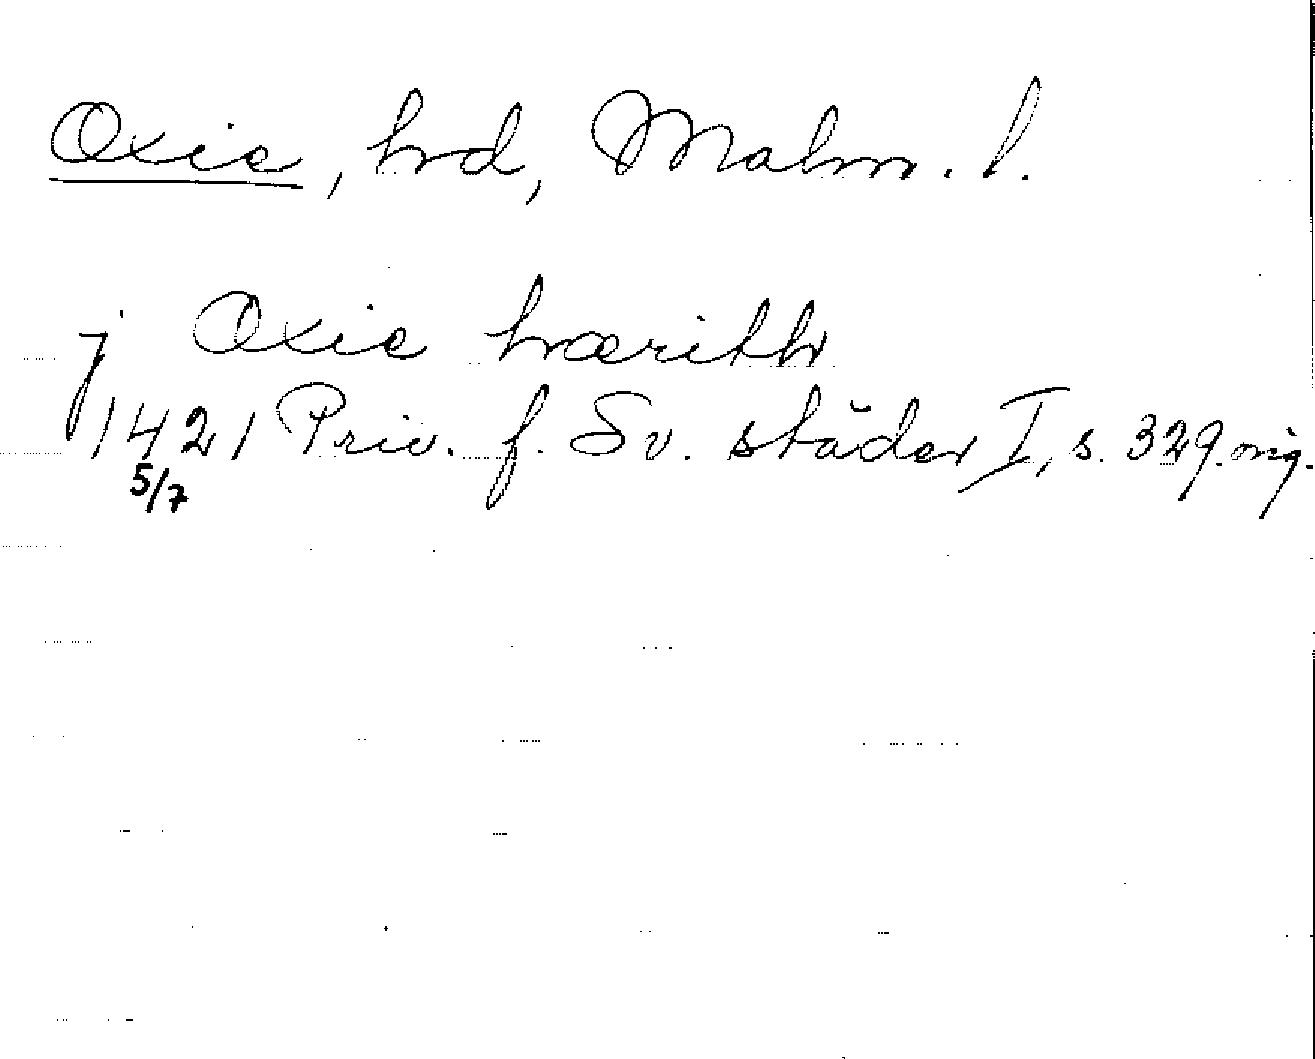 Oxie, hrd, Malm. l.
j Oxie hrærith
1421 Priv. f. Sv. städer I, s. 329. orig.
5/7